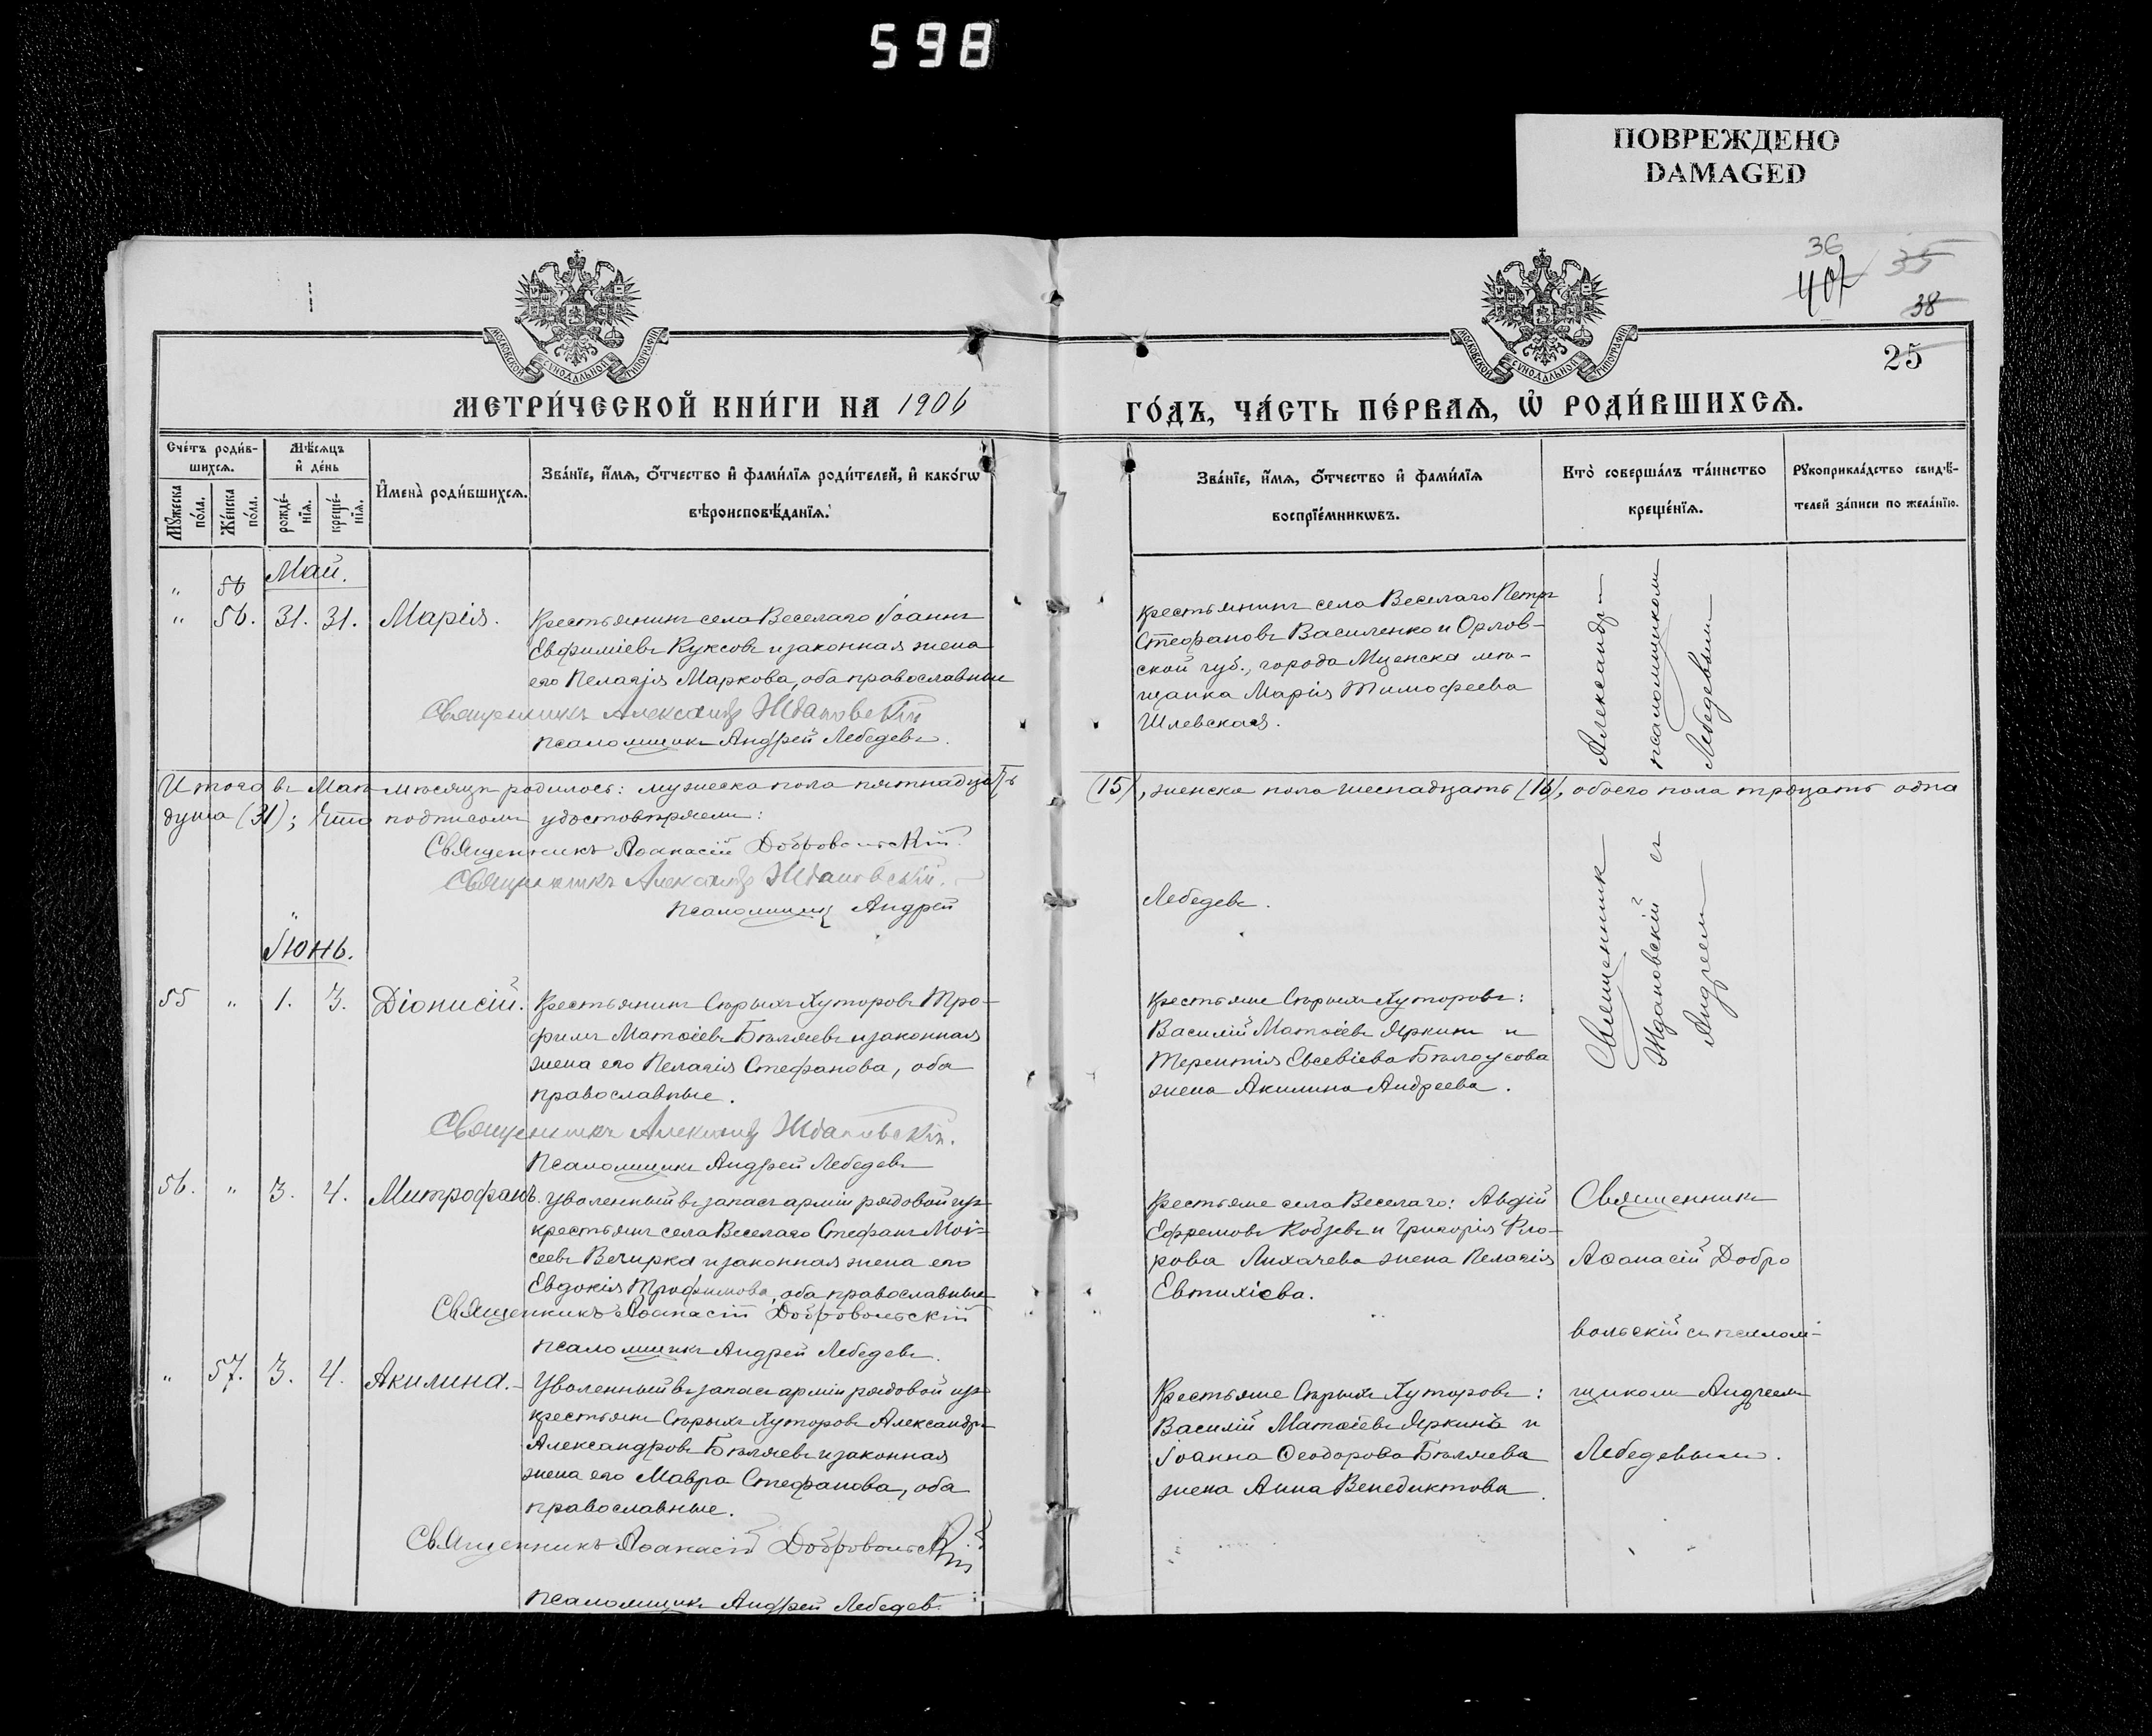 598
ПОВРЕЖДЕНО
DAMAGED
36
35
38
25
МОСКОВСКОЙ СѴНОДАЛЬНОЙ ТИПОГРАФІИ
МОСКОВСКОЙ СѴНОДАЛЬНОЙ ТИПОГРАФІИ
МЕТРИ́ЧЕСКОЙ КНИ́ГИ НА 1906
ГО́ДЪ, ЧА́СТЬ ПЕ́РВАѦ, Ѡ҆ РОДИ́ВШИХСѦ.
Сче́тъ роди́в-
шихсѧ.
Мꙋ́жеска по́ла.
Же́нска по́ла.
Мѣ́сѧцъ
и҆ де́нь
рожде́-
нїѧ.
креще́-
нїѧ.
И҆мена̀ роди́вшихсѧ.
Зва́нїе, и҆́мѧ, ѻ҆́тчество и҆ фами́лїѧ роди́телей, и҆ како́гѡ
вѣроисповѣ́данїѧ.
Зва́нїе, и҆́мѧ, ѻ҆́тчество и҆ фами́лїѧ
воспрїе́мникѡвъ.
Кто̀ соверша́лъ та́инство
креще́нїѧ.
Рꙋкоприкла́дство свидѣ́-
телей за́писи по жела́нїю.
Май.
" 56
" 56. 31. 31. Марія.
Крестьянинъ села Веселаго Іоаннъ
Евфиміевъ Куксовъ и законная жена
его Пелагія Маркова, оба православные
Священникъ Александръ Ждановскій
Псаломщикъ Андрей Лебедевъ.
Крестьянинъ села Веселаго Петръ
Стефановъ Василенко и Орлов-
ской губ., города Мценска мѣ-
щанка Марія Тимофеева
Шлевская.
Итого въ Маѣ мѣсяцѣ родилось: мужеска пола пятнадцать (15), женска пола шеснадцать (16), обоего пола тридцать одна
душа (31); что подписомъ удостовѣряемъ:
Священникъ Аѳанасій Добровольскій.
Священникъ Александръ Ждановскій.
Псаломщикъ Андрей Лебедевъ.
Священник Александръ
Ждановскій съ псаломщикомъ
Андреемъ Лебедевымъ
Іюнь.
55 " 1. 3. Діонисій.
Крестьянинъ Сѣрыхъ Хуторовъ Тро-
фимъ Матѳіевъ Бѣляевъ и законная
жена его Пелагія Стефанова, оба
православные.
Священникъ Александръ Ждановскій.
Псаломщикъ Андрей Лебедевъ
Крестьяне Сѣрыхъ Хуторовъ:
Василій Матѳіевъ Яркинъ и
Терентія Евсевіева Бѣлоусова
жена Акилина Андреева.
56. " 3. 4. Митрофанъ.
Уволенный въ запасъ арміи рядовой изъ
крестьянъ села Веселаго Стефанъ Мои-
сеевъ Вечирка и законная жена его
Евдокія Трофимова, оба православные
Священникъ Аѳанасій Добровольскій
Псаломщикъ Андрей Лебедевъ.
Крестьяне села Веселаго: Авдій
Ефремовъ Кобзевъ и Григорія Фло-
рова Лихачева жена Пелагія
Евтихіева.
Священникъ
Аѳанасій Добро
вольскій съ псалом-
щикомъ Андреемъ
Лебедевымъ.
" 57. 3. 4. Акилина.
Уволенный въ запасъ арміи рядовой изъ
крестьянъ Сѣрыхъ Хуторовъ Александръ
Александровъ Бѣляевъ и законная
жена его Мавра Стефанова, оба
православные.
Священникъ Аѳанасій Добровольскій
Псаломщикъ Андрей Лебедевъ.
Крестьяне Сѣрыхъ Хуторовъ:
Василій Матѳіевъ Яркинъ и
Іоанна Ѳеодорова Бѣляева
жена Анна Венедиктова.